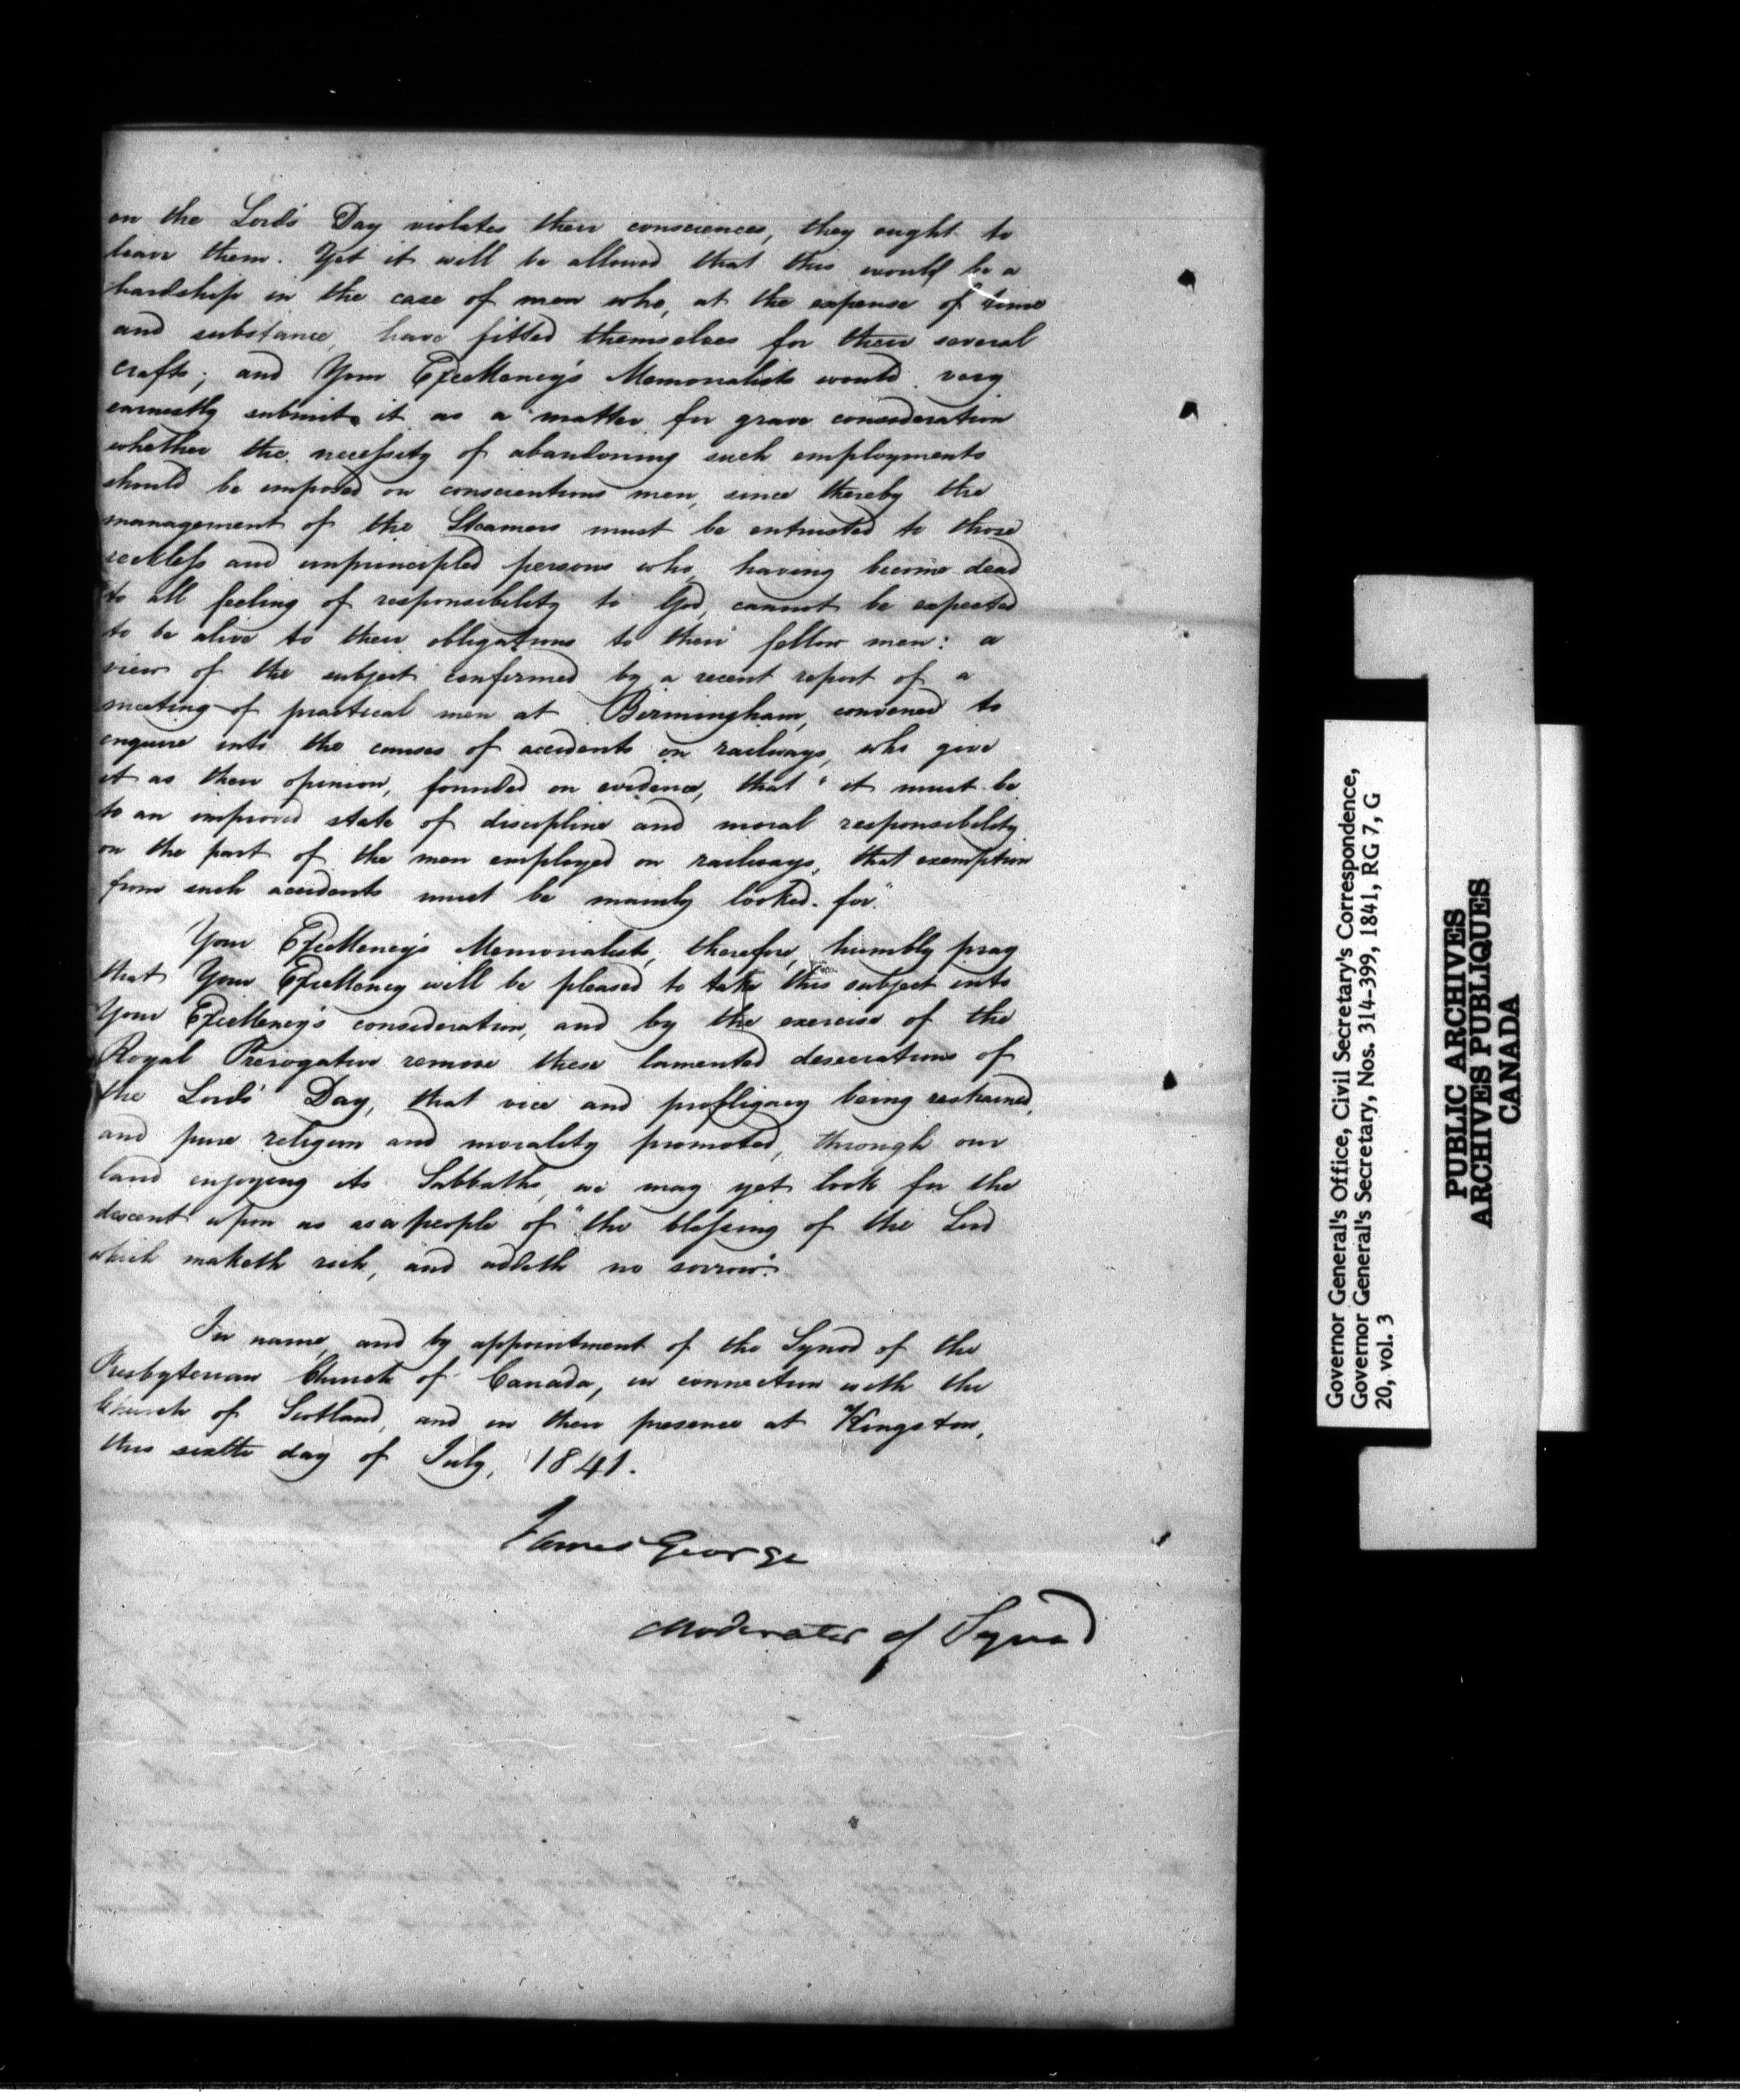 on the Lord's Day violates their consciences, they ought to
leave them. Yet it will be allowed that this would be a
hardship in the case of men who, at the expense of time
and substance, have fitted themselves for their several
crafts; and Your Excellency's Memorialists would very
earnestly submit it as a matter for grave consideration
whether the necessity of abandoning such employments
should be imposed on conscientious men, since thereby the
management of the Steamers must be entrusted to those
reckless and unprincipled persons who, having become dead
to all feeling of responsibility to God, cannot be expected
to be alive to their obligations to their fellow men: a
view of the subject confirmed by a recent report of a
meeting of practical men at Birmingham, convened to
enquire into the causes of accidents on railways, who give
it as their opinion, founded on evidence, that "it must be
to an improved state of discipline and moral responsibility
on the part of the men employed on railways, that exemption
from such accidents must be mainly looked for."
Your Excellency's Memorialists, therefore, humbly pray
that Your Excellency will be pleased to take this subject into
Your Excellency's consideration, and by the exercise of the
Royal Prerogative remove these lamented desecrations of
the Lord's Day, that vice and profligacy being restrained,
and pure religion and morality promoted, through our
land enjoying its Sabbaths, we may yet look for the
descent upon us as a people of "the blessing of the Lord
which maketh rich, and addeth no sorrow."
In name, and by appointment of the Synod of the
Presbyterian Church of Canada, in connection with the
Church of Scotland, and in their presence at Kingston,
this sixth day of July, 1841.
James George
Moderator of Synod
Governor General's Office, Civil Secretary's Correspondence,
Governor General's Secretary, Nos. 314-399, 1841, RG 7, G
20, vol. 3
PUBLIC ARCHIVES
ARCHIVES PUBLIQUES
CANADA